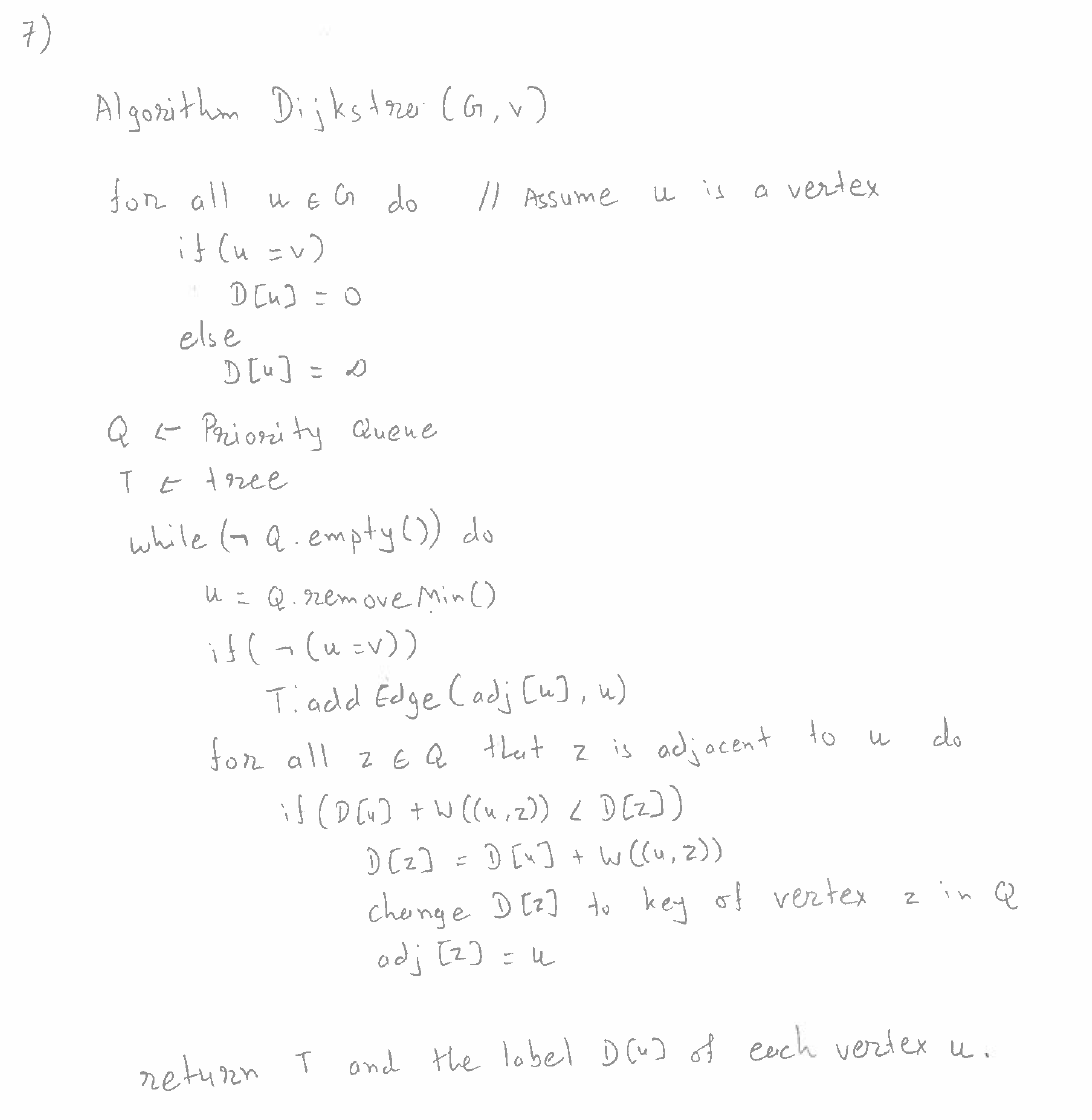 7)
Algorithm Dijkstra (G, v)
for all u ∈ G do // Assume u is a vertex
if (u = v)
D[u] = 0
else
D[u] = ∞
Q ← Priority Queue
T ← tree
while (¬ Q.empty()) do
u = Q.removeMin()
if (¬ (u = v))
T.add Edge (adj [u], u)
for all z ∈ Q that z is adjacent to u do
if (D[u] + W((u,z)) < D[z])
D[z] = D[u] + W((u,z))
change D[z] to key of vertex z in Q
adj [z] = u
return T and the label D[u] of each vertex u.